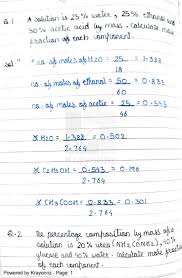 Q.1 A solution is 25% water, 25% ethanol and
50% acetic acid by mass. Calculate mole
fraction of each component.
Sol" no. of moles of H2O = 25 = 1.388
18
no. of moles of ethanol = 50 = 0.833
60
no. of moles of acetic = 25 = 0.543
46
x H2O = 1.388 = 0.502
2.764
x C2H5OH = 0.543 = 0.196
2.764
x CH3COOH = 0.833 = 0.301
2.764
Q.2 The percentage composition by mass of a
solution is 20% urea (NH2CONH2), 40%
glucose and 40% water. calculate mole fraction
of each component.
Powered by Krayonnz - Page: 1